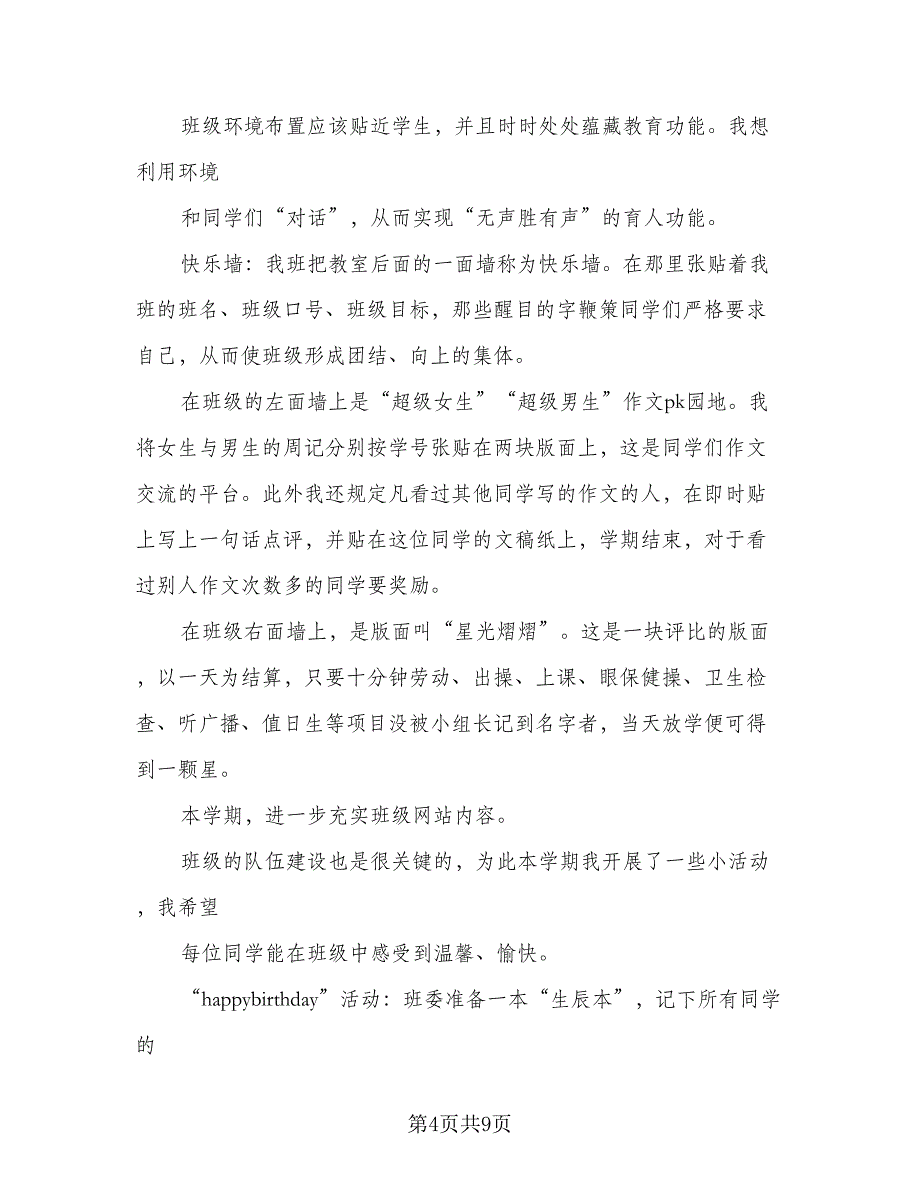 班级环境布置应该贴近学生，并且时时处处蕴藏教育功能。我想
利用环境
和同学们“对话”，从而实现“无声胜有声”的育人功能。
快乐墙：我班把教室后面的一面墙称为快乐墙。在那里张贴着我
班的班名、班级口号、班级目标，那些醒目的字鞭策同学们严格要求
自己，从而使班级形成团结、向上的集体。
在班级的左面墙上是“超级女生”“超级男生”作文pk园地。我
将女生与男生的周记分别按学号张贴在两块版面上，这是同学们作文
交流的平台。此外我还规定凡看过其他同学写的作文的人，在即时贴
上写上一句话点评，并贴在这位同学的文稿纸上，学期结束，对于看
过别人作文次数多的同学要奖励。
在班级右面墙上，是版面叫“星光熠熠”。这是一块评比的版面
，以一天为结算，只要十分钟劳动、出操、上课、眼保健操、卫生检
查、听广播、值日生等项目没被小组长记到名字者，当天放学便可得
到一颗星。
本学期，进一步充实班级网站内容。
班级的队伍建设也是很关键的，为此本学期我开展了一些小活动
，我希望
每位同学能在班级中感受到温馨、愉快。
“happybirthday”活动：班委准备一本“生辰本”，记下所有同学
的
第4页共9页